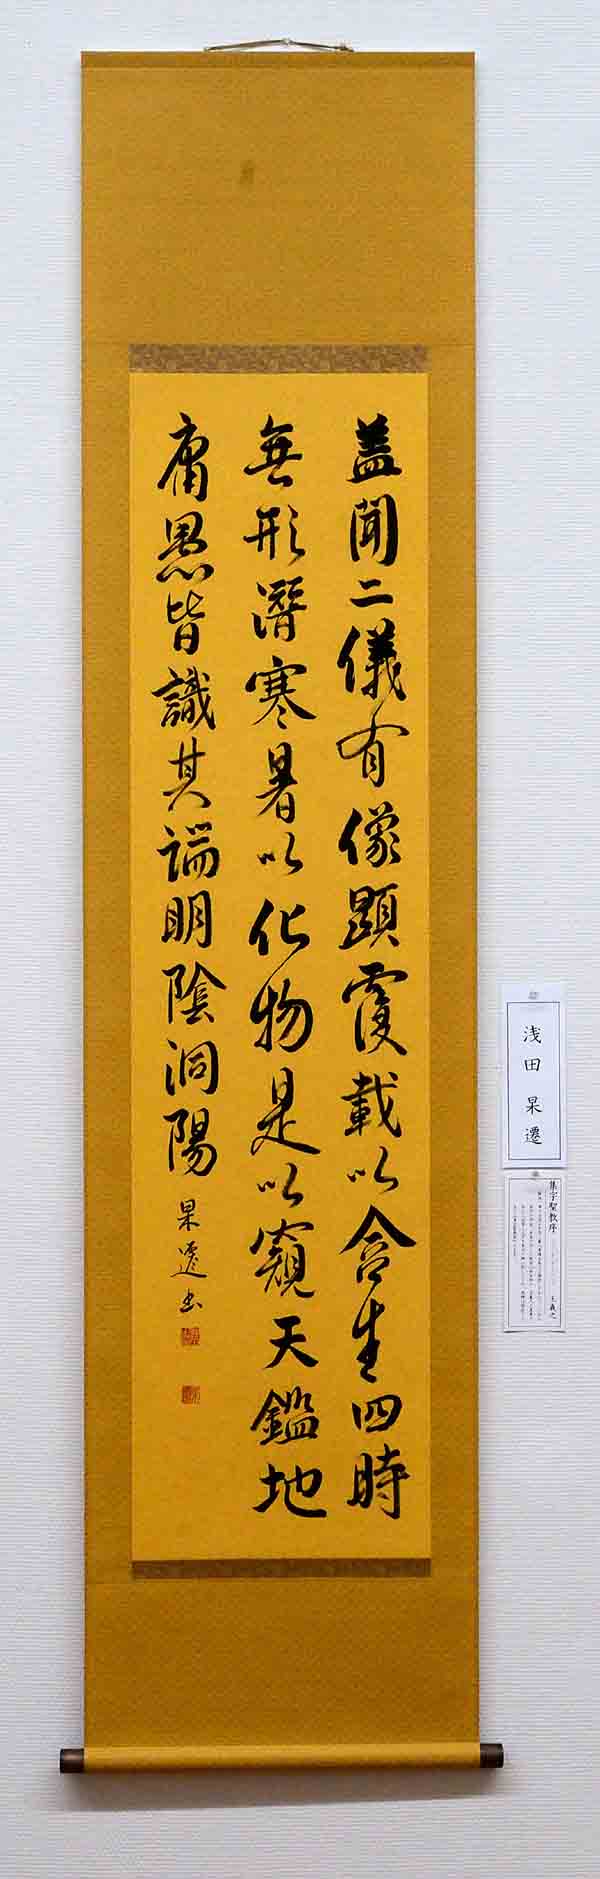 蓋聞二儀有像顕覆載以含生四時
無形潜寒暑以化物是以窺天鑑地
庸愚皆識其端明陰洞陽
杲遷書
浅田杲遷
集字聖教序
王羲之